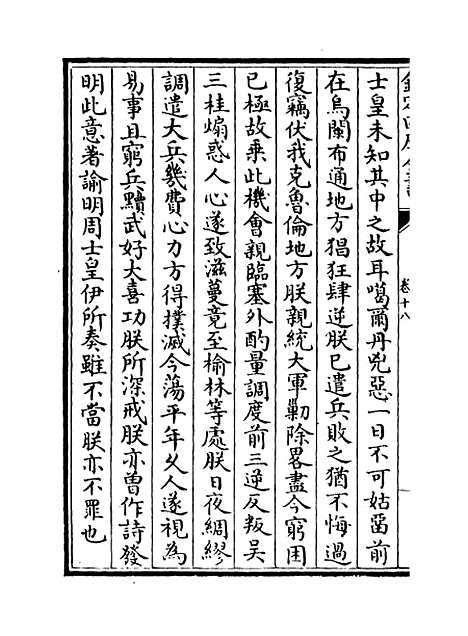 欽定四庫全書
卷十八
士皇未知其中之故耳噶爾丹兇惡一日不可姑留前
在烏闌布通地方猖狂肆逆朕已遣兵敗之猶不悔過
復竊伏我克魯倫地方朕親統大軍勦除畧盡今窮困
已極故乗此機會親臨塞外酌量調度前三逆反叛吴
三桂煽惑人心遂致滋蔓竟至榆林等處朕日夜綢繆
調遣大兵幾費心力方得撲滅今蕩平年乆人遂視為
易事且窮兵黷武好大喜功朕所深戒朕亦曽作詩發
明此意著諭明周士皇伊所奏雖不當朕亦不罪也